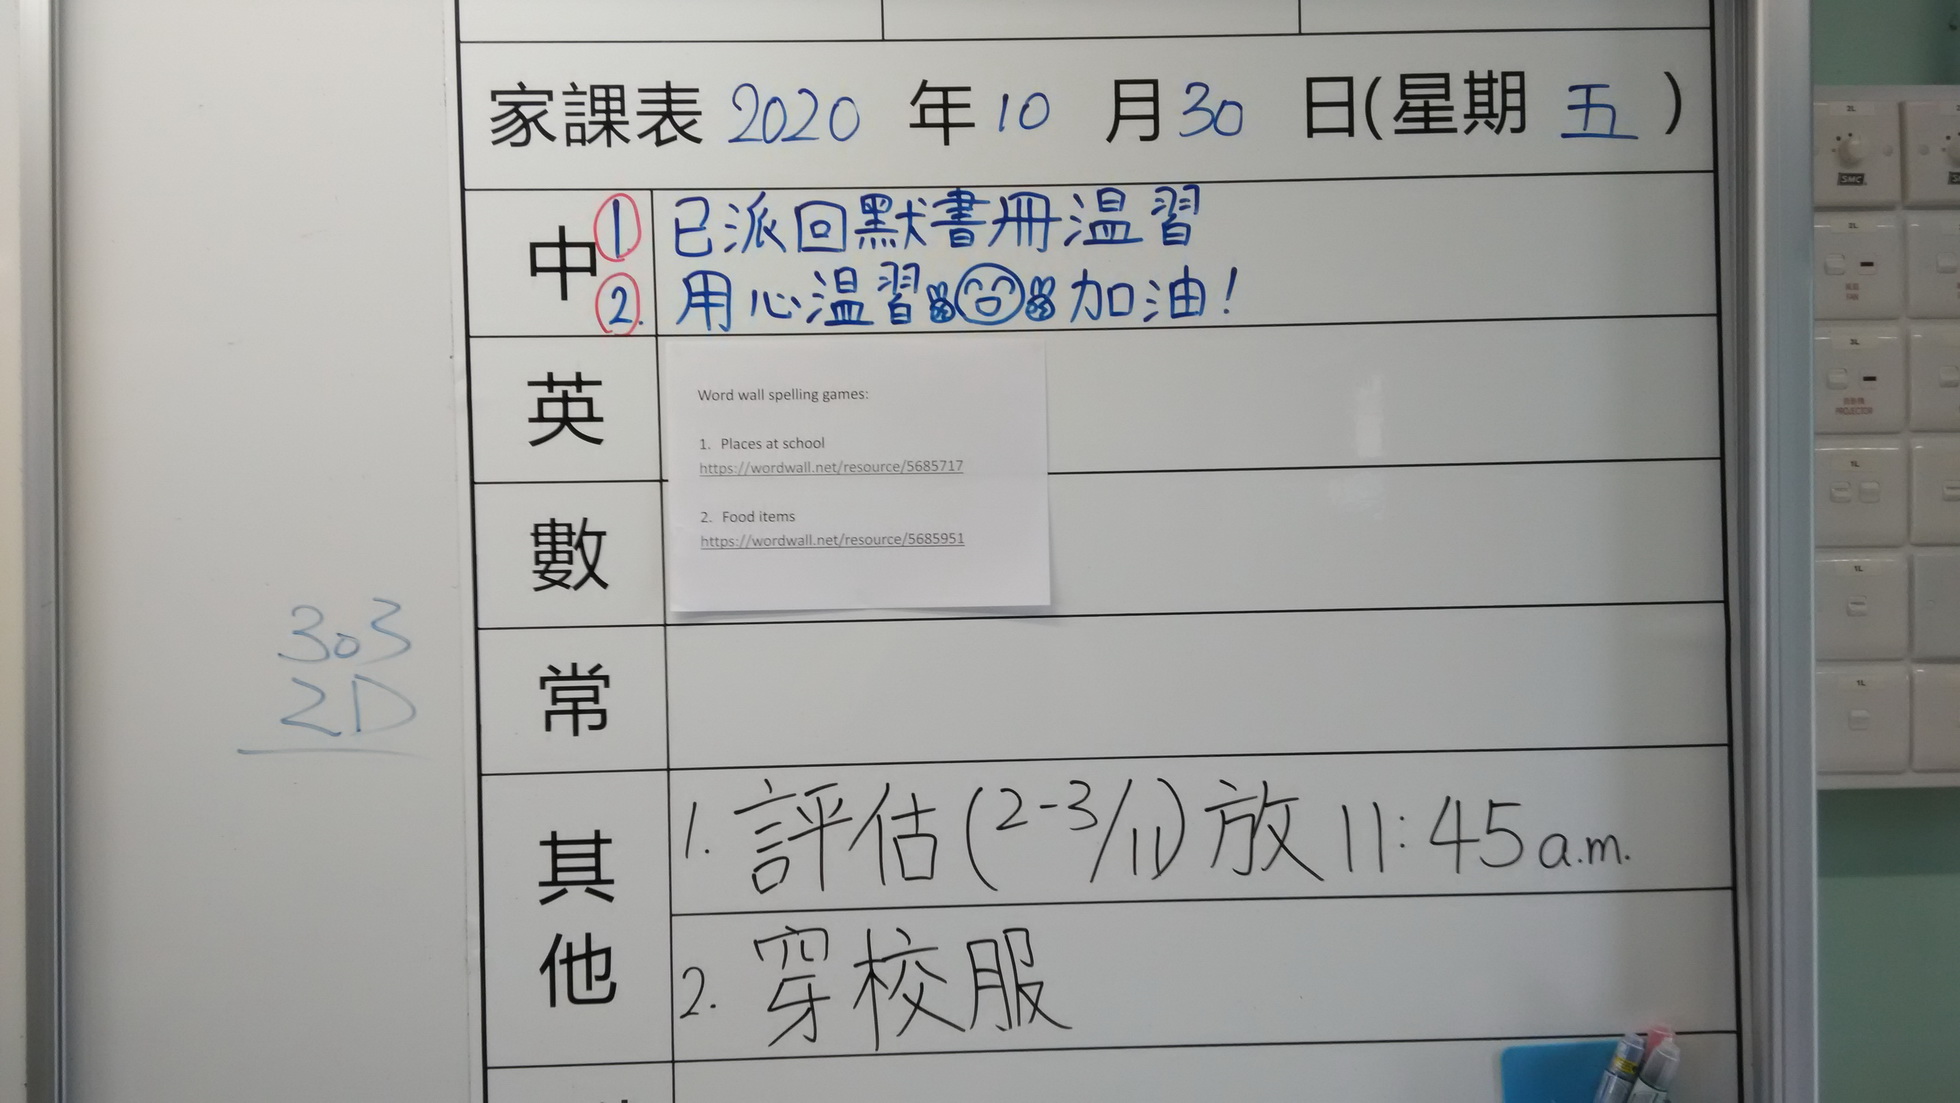 家課表 2020 年 10 月 30 日(星期 五 )
中 1 已派回默書冊温習
2. 用心温習 加油!
英
Word wall spelling games:
1. Places at school
https://wordwall.net/resource/5685717
數
2. Food items
https://wordwall.net/resource/5685951
常
303
2D
其他
1. 評估(2-3/11)放 11:45 a.m.
2. 穿校服
2L
SMC
2L
FAN
3L
PROJECTOR
1L
1L
1L